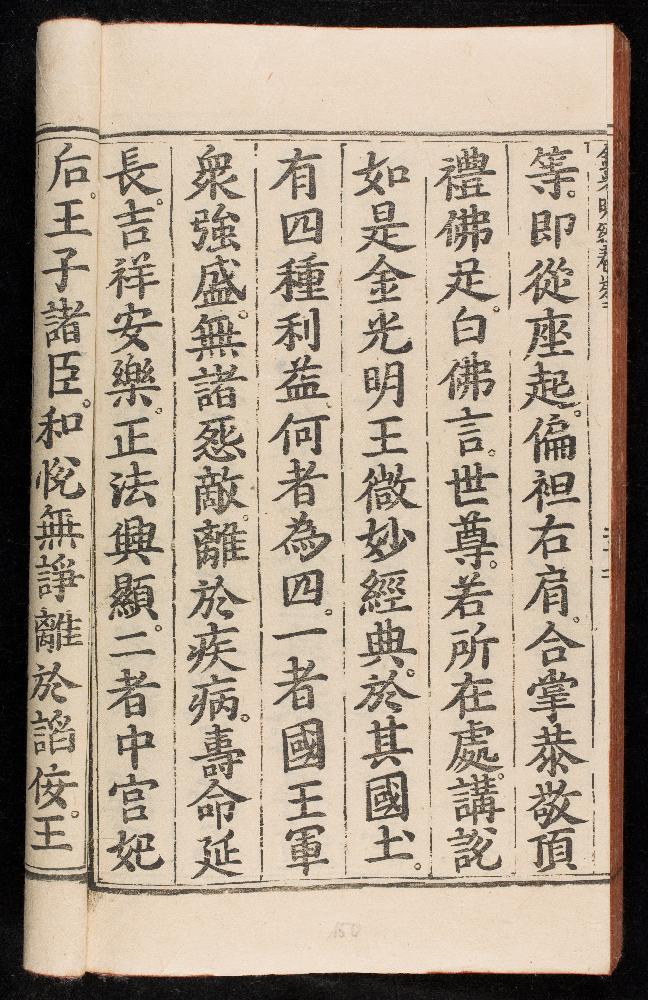 等。即從座起。偏袒右肩。合掌恭敬頂
禮佛足。白佛言。世尊。若所在處。講說
如是金光明王微妙經典。於其國土。
有四種利益。何者為四。一者國王軍
衆強盛。無諸怨敵。離於疾病。壽命延
長。吉祥安樂。正法興顯。二者中宮妃
后。王子諸臣。和悅無諍。離於諂侫。王
150